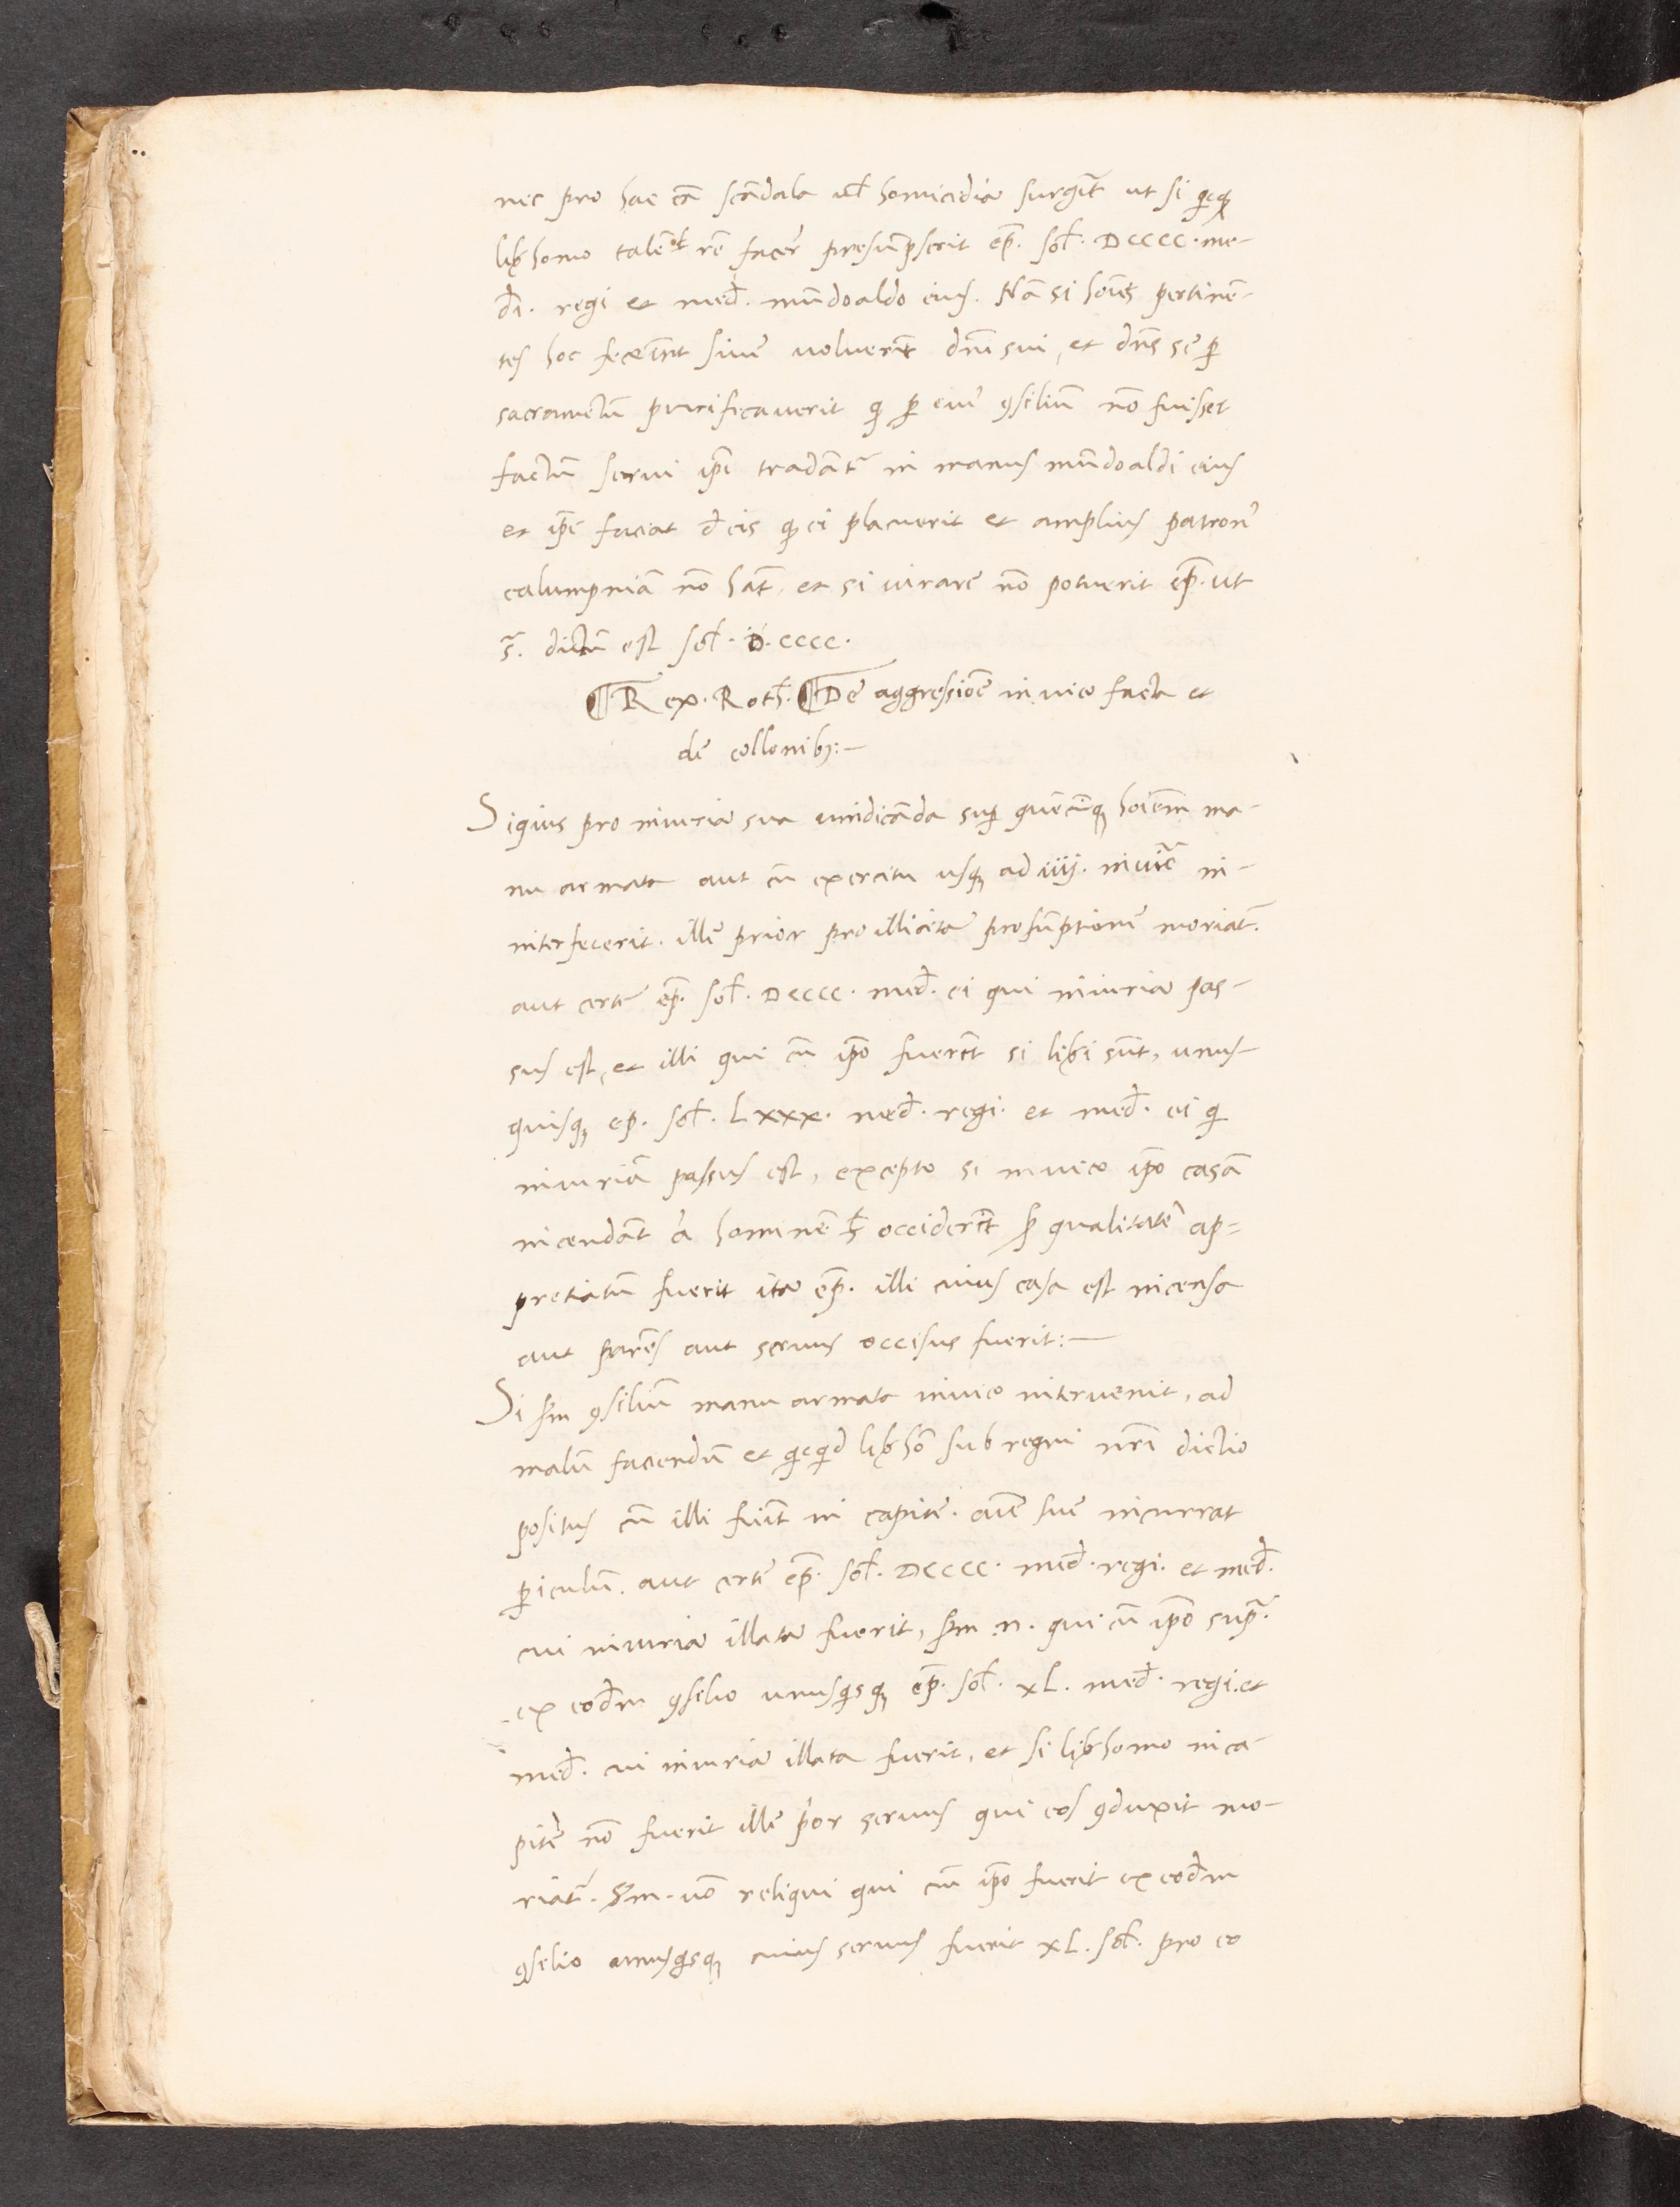 nec pro hac cā scādala ul̄ homicidia surgāt ut si qͥcqꝫ
lib̄ homo talē uel rē facer̄ presūpserit cp̄. sol̄. DCCCC. me-
di. regi et med̄. mūdoaldo eius. Nā si hoīes pertinē-
tes hoc fecerīnt sine voluerīt dn̄i sui, et dn̄s se ꝑ
sacramētū purificauerit qͥ ꝑ eiu ꝯsiliū nō fuisset
factū serui ip̄i tradāt̄ in manus mūdoaldi eius
et ip̄e faciat d̄ eis qꝫ ei placuerit et amplius patron̄
calumpniā nō hāt, et si iurare nō potuerit cp̄. ut
s̄. dictū est sol̄. D. CCCC.
¶ Rex. Roth̄. ¶ De aggressiōe in uico facta et
de collonibꝫ:—
Siquis pro iniuria sua uindicāda sup̄ quēcūqꝫ hoīem ma-
nu armata aut cū exercitu usqꝫ ad iiij. in uico in-
interfecerit. ille prior pro illicita presūptione moriat̄.
aut certe cp̄. sol̄. DCCCC. med̄. ei qui iniuria pas-
sus est, et illi qui cū ip̄o fuerīt si lib̄i sūt, unus-
quisqꝫ cp. sol̄. Lxxx. med̄. regi. et med̄. ei qͥ
iniuriā passus est, excepto si in uico ip̄o casā
incendāt ā hominē occiderīt qualitatē ap-
pretiatū fuerit ita cp̄. illi cuius casa est incensa
aut parēs aut seruus occisus fuerit:—
Si ꝯsiliū manu armata in uico interuenit, ad
malū faciendū et qͥcqͥd lib̄ hō sub regni nr̄i dictio
positus cū illi fuīt in capite. aīe sue incurrat
ꝑiculū. aut certe cp̄. sol̄. DCCCC. med̄. regi. et med̄.
cui iniuria illata fuerit, n. qui cū ip̄o supᵃ.
ex eod̄m ꝯsilio unusqͥsqꝫ cp̄. sol̄. xL. med̄. regi. et
med̄. cui iniuria illata fuerit, et si lib̄ homo in ca-
pite nō fuerit ille pͥor seruus qui eos ꝯduxit mo-
riat̄. uō reliqui qui cū ip̄o fuerit ex eod̄m
ꝯsilio unusqͥsqꝫ cuius seruus fuerit xL. sol̄. pro eo